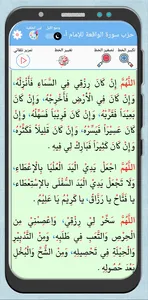 حزب سورة الواقعة للإمام
تكبير الخط
تصغير الخط
تغيير الخط
تمرير تلقائي
اللَّهُمَّ إِنْ كَانَ رِزْقِي فِي السَّمَاءِ فَأَنْزِلْهُ،
وَإِنْ كَانَ فِي الْأَرْضِ فَأَخْرِجْهُ، وَإِنْ كَانَ
بَعِيدًا فَقَرِّبْهُ، وَإِنْ كَانَ قَلِيلًا فَكَثِّرْهُ،
وَإِنْ كَانَ كَثِيرًا فَبَارِكْ لِي فِيهِ.
اللَّهُمَّ اجْعَلْ يَدِيَ الْيَدَ الْعُلْيَا بِالْإِعْطَاءِ،
وَلَا تَجْعَلْ يَدِيَ الْيَدَ السُّفْلَى بِالْإِسْتِعْطَاءِ،
يَا فَتَّاحُ يَا رَزَّاقُ، يَا كَرِيمُ يَا عَلِيمُ.
اللَّهُمَّ سَخِّرْ لِي رِزْقِي، وَاعْصِمْنِي مِنَ
الْحِرْصِ وَالتَّعَبِ فِي طَلَبِهِ، وَمِنَ التَّدْبِيرِ
وَالْحِيلَةِ فِي تَحْصِيلِهِ، وَمِنَ الشُّحِّ وَالْبُخْلِ
بَعْدَ حُصُولِهِ.